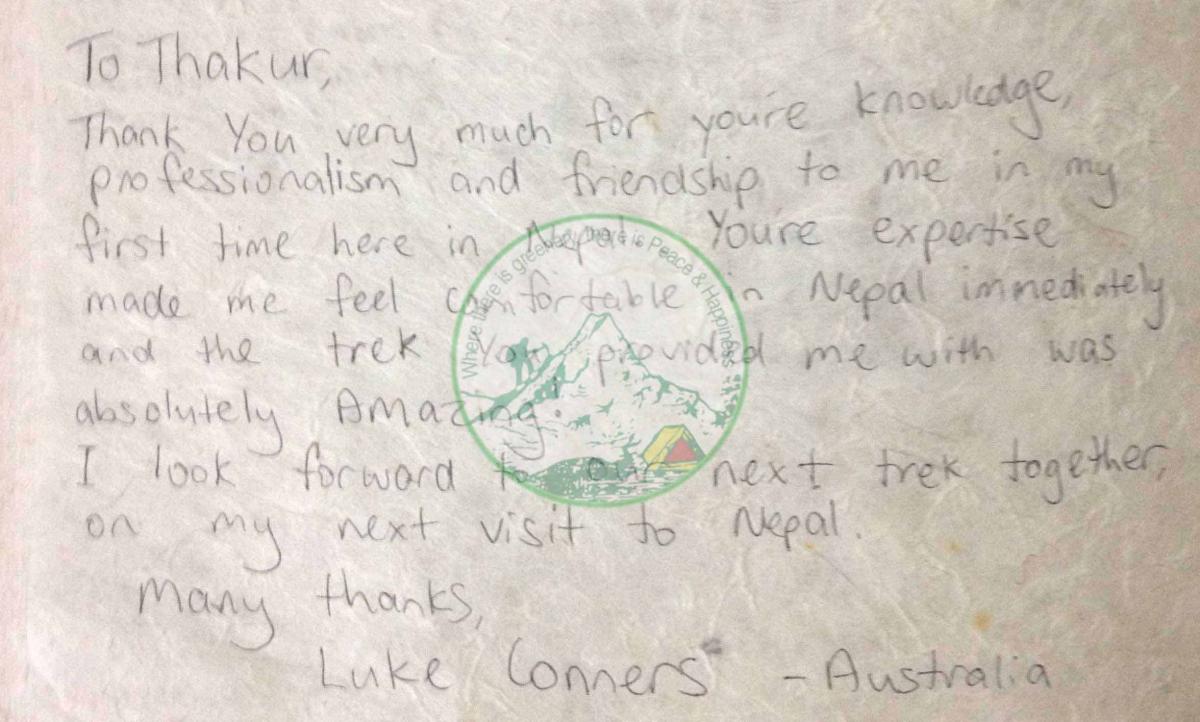 To Thakur,
Thank You very much for you're knowledge,
professionalism and friendship to me in my
first time here in Nepal. You're expertise
made me feel comfortable in Nepal immediately
and the trek you provided me with was
absolutely Amazing!
I look forward to our next trek together,
on my next visit to Nepal.
Many thanks,
Luke Conners - Australia
Where there is greenery, there is Peace & Happiness